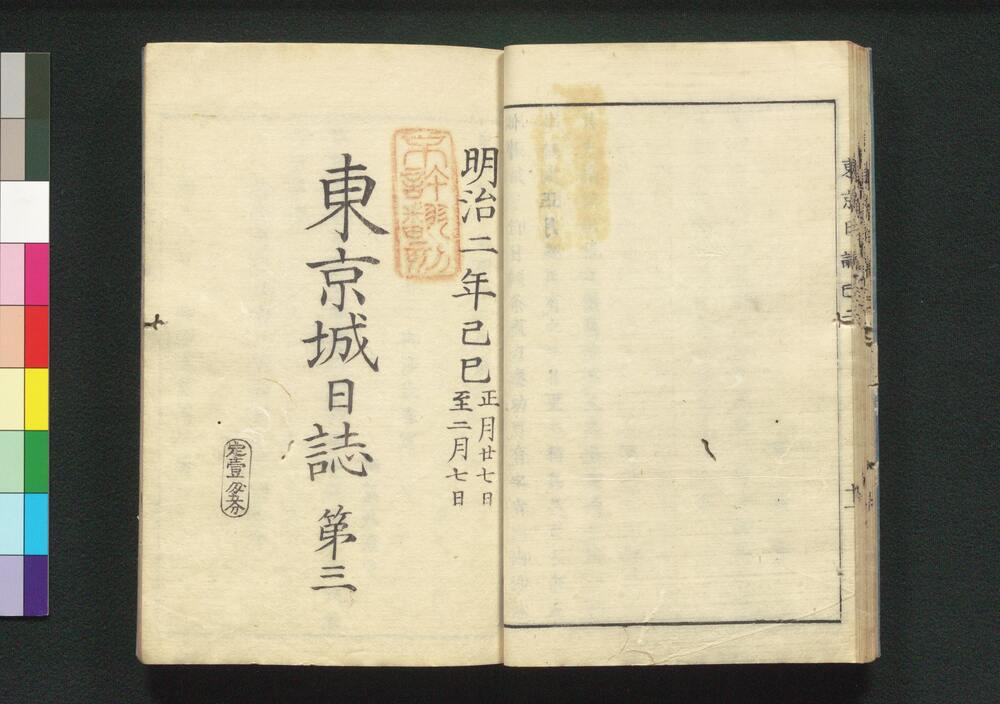 東京日誌巳二
十一
明治二年己巳
正月廿七日
至二月七日
東京城日誌 第三
定壹匁五分